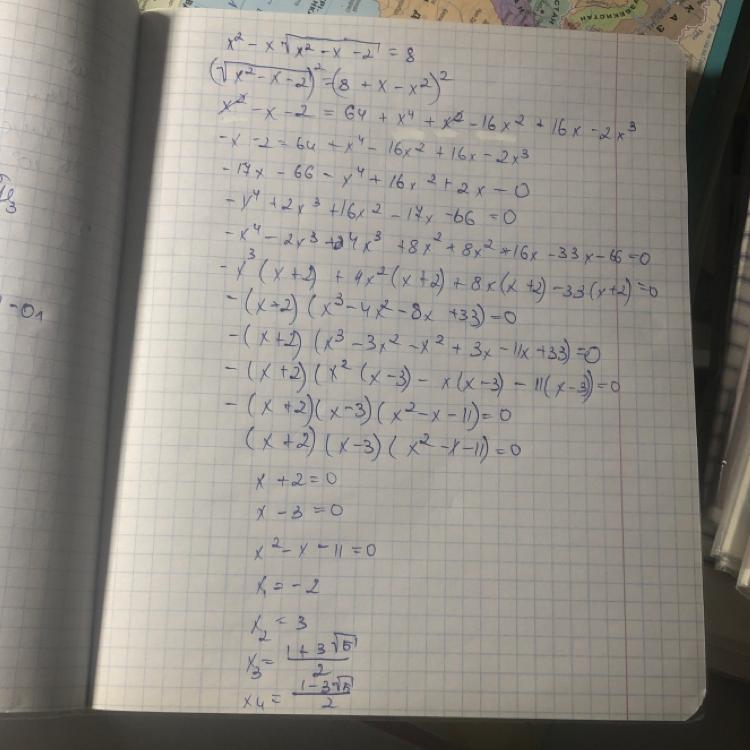 КАЗ
УЗБЕКИСТАН
x² - x √(x² - x - 2) = 8
(√(x² - x - 2))² = (8 + x - x²)²
x² - x - 2 = 64 + x⁴ + x² - 16x² + 16x - 2x³
-x - 2 = 64 + x⁴ - 16x² + 16x - 2x³
-17x - 66 - x⁴ + 16x² + 2x - 0
-x⁴ + 2x³ + 16x² - 17x - 66 = 0
-x⁴ - 2x³ + 4x³ + 8x² + 8x² + 16x - 33x - 66 = 0
-x³ (x+2) + 4x² (x+2) + 8x (x+2) - 33 (x+2) = 0
-(x+2) (x³ - 4x² - 8x + 33) = 0
-(x+2) (x³ - 3x² - x² + 3x - 11x + 33) = 0
-(x+2) (x² (x-3) - x (x-3) - 11 (x-3)) = 0
-(x+2) (x-3) (x² - x - 11) = 0
(x+2) (x-3) (x² - x - 11) = 0
x + 2 = 0
x - 3 = 0
x² - x - 11 = 0
x₁ = -2
x₂ = 3
x₃ = (1 + 3√5)/2
x₄ = (1 - 3√5)/2